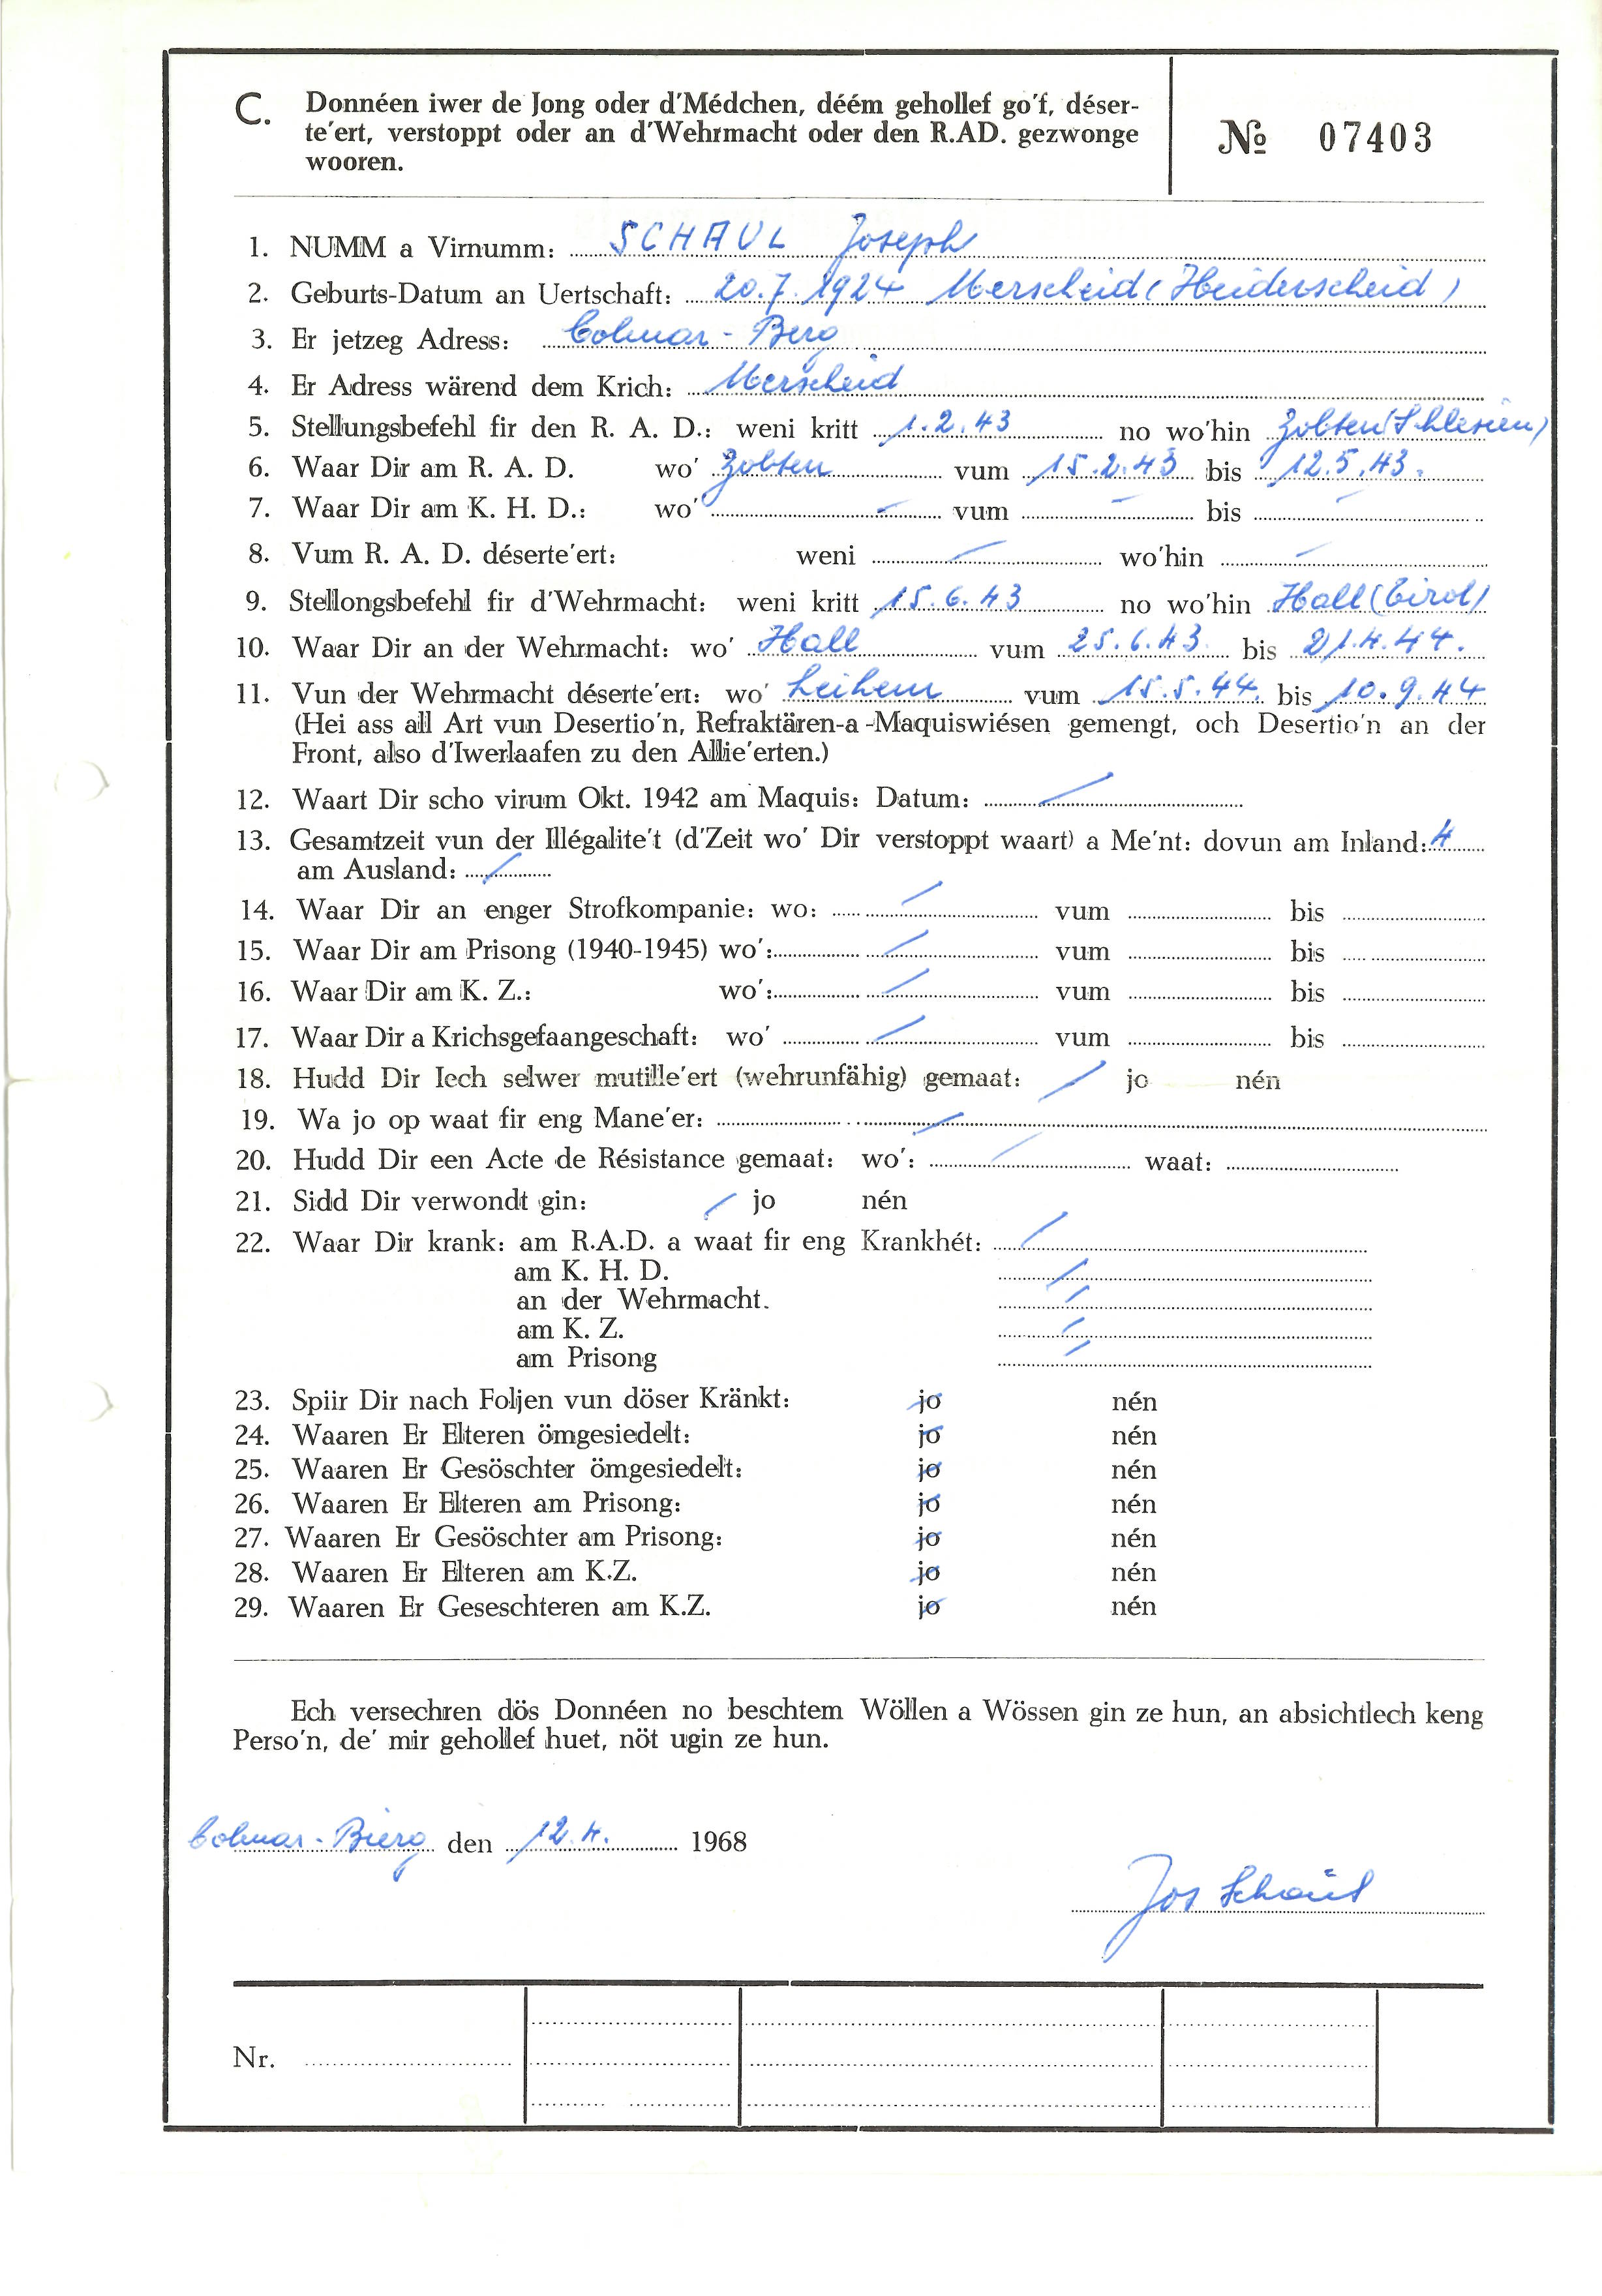 C. Donnéen iwer de Jong oder d'Médchen, déém gehollef go'f, déser-
te'ert, verstoppt oder an d'Wehrmacht oder den R.AD. gezwonge
wooren.
№ 07403
1. NUMM a Virnumm: SCHAUL Joseph
2. Geburts-Datum an Uertschaft: 20.7.1924 Merscheid (Heiderscheid)
3. Er jetzeg Adress: Colmar-Berg
4. Er Adress wärend dem Krich: Merscheid
5. Stellungsbefehl fir den R. A. D.: weni kritt 1.2.43 no wo'hin Zobten (Schlesien)
6. Waar Dir am R. A. D. wo' Zobten vum 15.2.43 bis 12.5.43.
7. Waar Dir am K. H. D.: wo' - vum - bis -
8. Vum R. A. D. déserte'ert: weni - wo'hin -
9. Stellongsbefehl fir d'Wehrmacht: weni kritt 15.6.43 no wo'hin Hall (Tirol)
10. Waar Dir an der Wehrmacht: wo' Hall vum 25.6.43. bis 21.4.44.
11. Vun der Wehrmacht déserte'ert: wo' vum 15.5.44. bis 10.9.44
(Hei ass all Art vun Desertio'n, Refraktären-a-Maquiswiésen gemengt, och Desertio'n an der
Front, also d'Iwerlaafen zu den Allie'erten.)
12. Waart Dir scho virum Okt. 1942 am Maquis: Datum: /
13. Gesamtzeit vun der Illégalite't (d'Zeit wo' Dir verstoppt waart) a Me'nt: dovun am Inland: 4
am Ausland: /
14. Waar Dir an enger Strofkompanie: wo: / vum bis
15. Waar Dir am Prisong (1940-1945) wo': / vum bis
16. Waar Dir am K. Z.: wo': / vum bis
17. Waar Dir a Krichsgefaangeschaft: wo' / vum bis
18. Hudd Dir Iech selwer mutille'ert (wehrunfähig) gemaat: / jo nén
19. Wa jo op waat fir eng Mane'er: /
20. Hudd Dir een Acte de Résistance gemaat: wo': / waat:
21. Sidd Dir verwondt gin: / jo nén
22. Waar Dir krank: am R.A.D. a waat fir eng Krankhét: /
am K. H. D. /
an der Wehrmacht. /
am K. Z. /
am Prisong /
23. Spiir Dir nach Foljen vun döser Kränkt: jo nén
24. Waaren Er Elteren ömgesiedelt: jo nén
25. Waaren Er Gesöschter ömgesiedelt: jo nén
26. Waaren Er Elteren am Prisong: jo nén
27. Waaren Er Gesöschter am Prisong: jo nén
28. Waaren Er Elteren am K.Z. jo nén
29. Waaren Er Geseschteren am K.Z. jo nén
Ech versechren dös Donnéen no beschtem Wöllen a Wössen gin ze hun, an absichtlech keng
Perso'n, de' mir gehollef huet, nöt ugin ze hun.
Colmar-Bierg den 12.4. 1968
Jos Schaul
Nr.